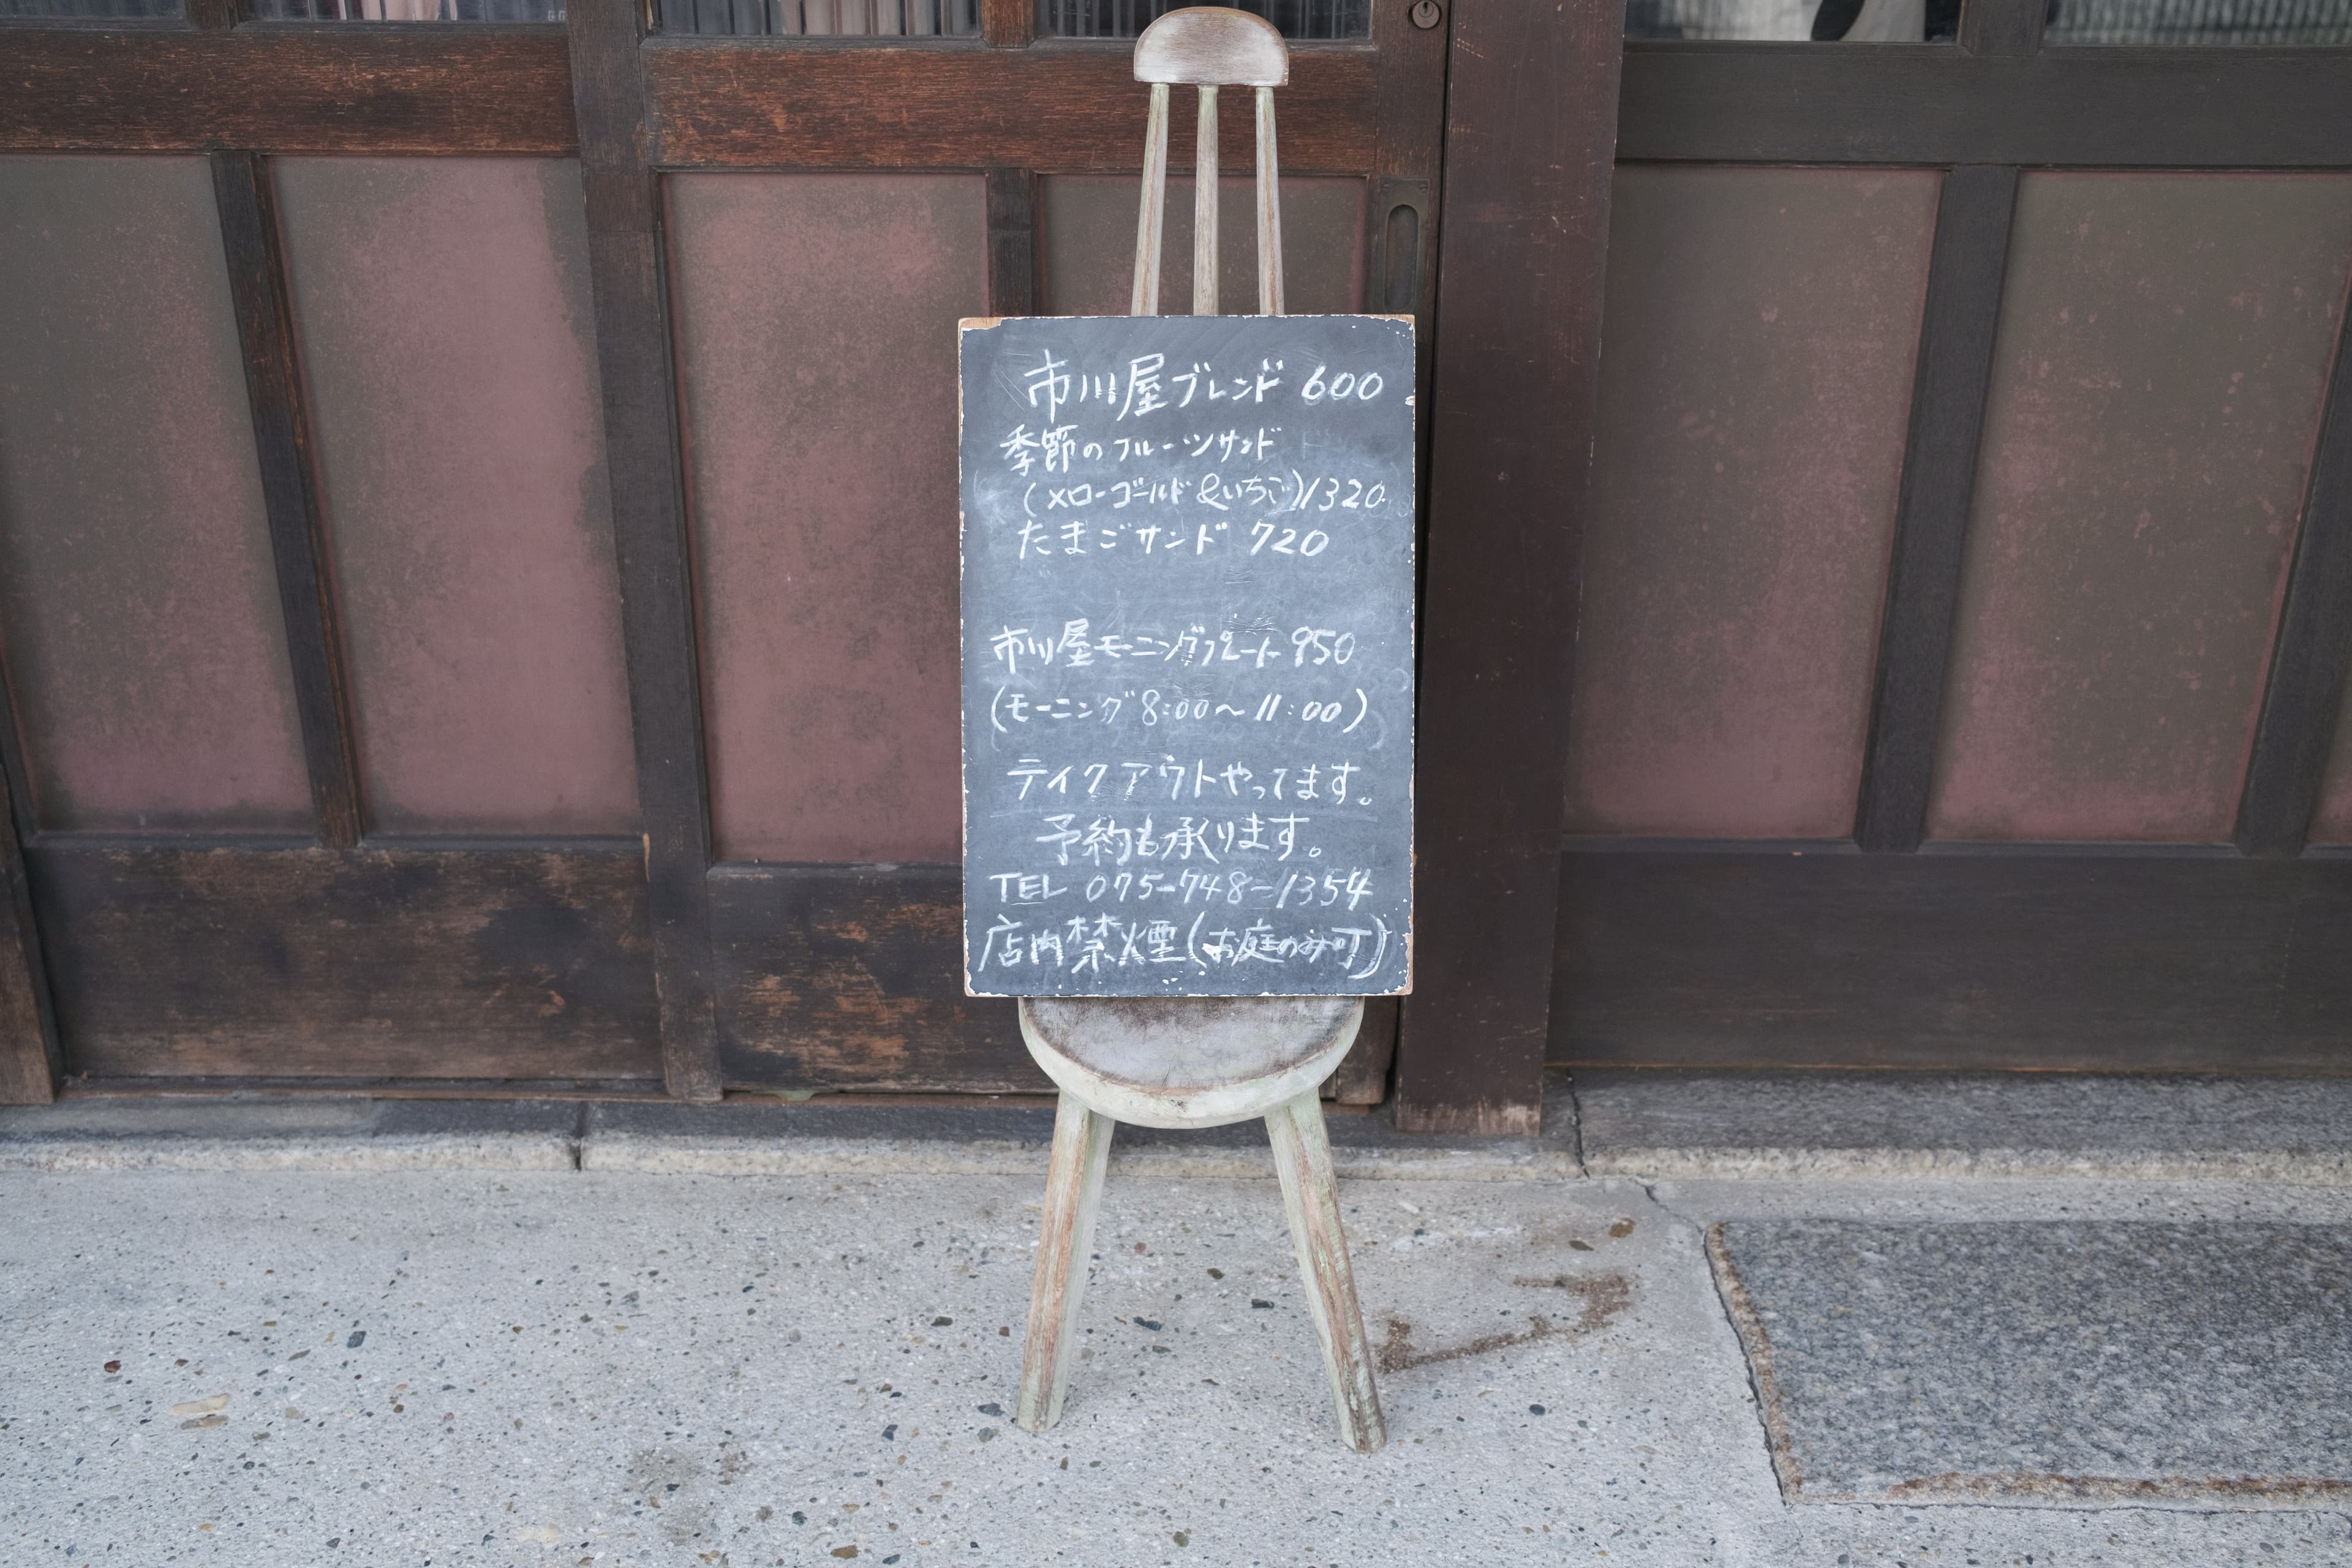 市川屋ブレンド 600
季節のフルーツサンド
(メローゴールド&いちご)1320
たまごサンド 720
市川屋モーニングプレート 950
(モーニング 8:00〜11:00)
テイクアウトやってます。
予約も承ります。
TEL 075-748-1354
店内禁煙(お庭のみ可)